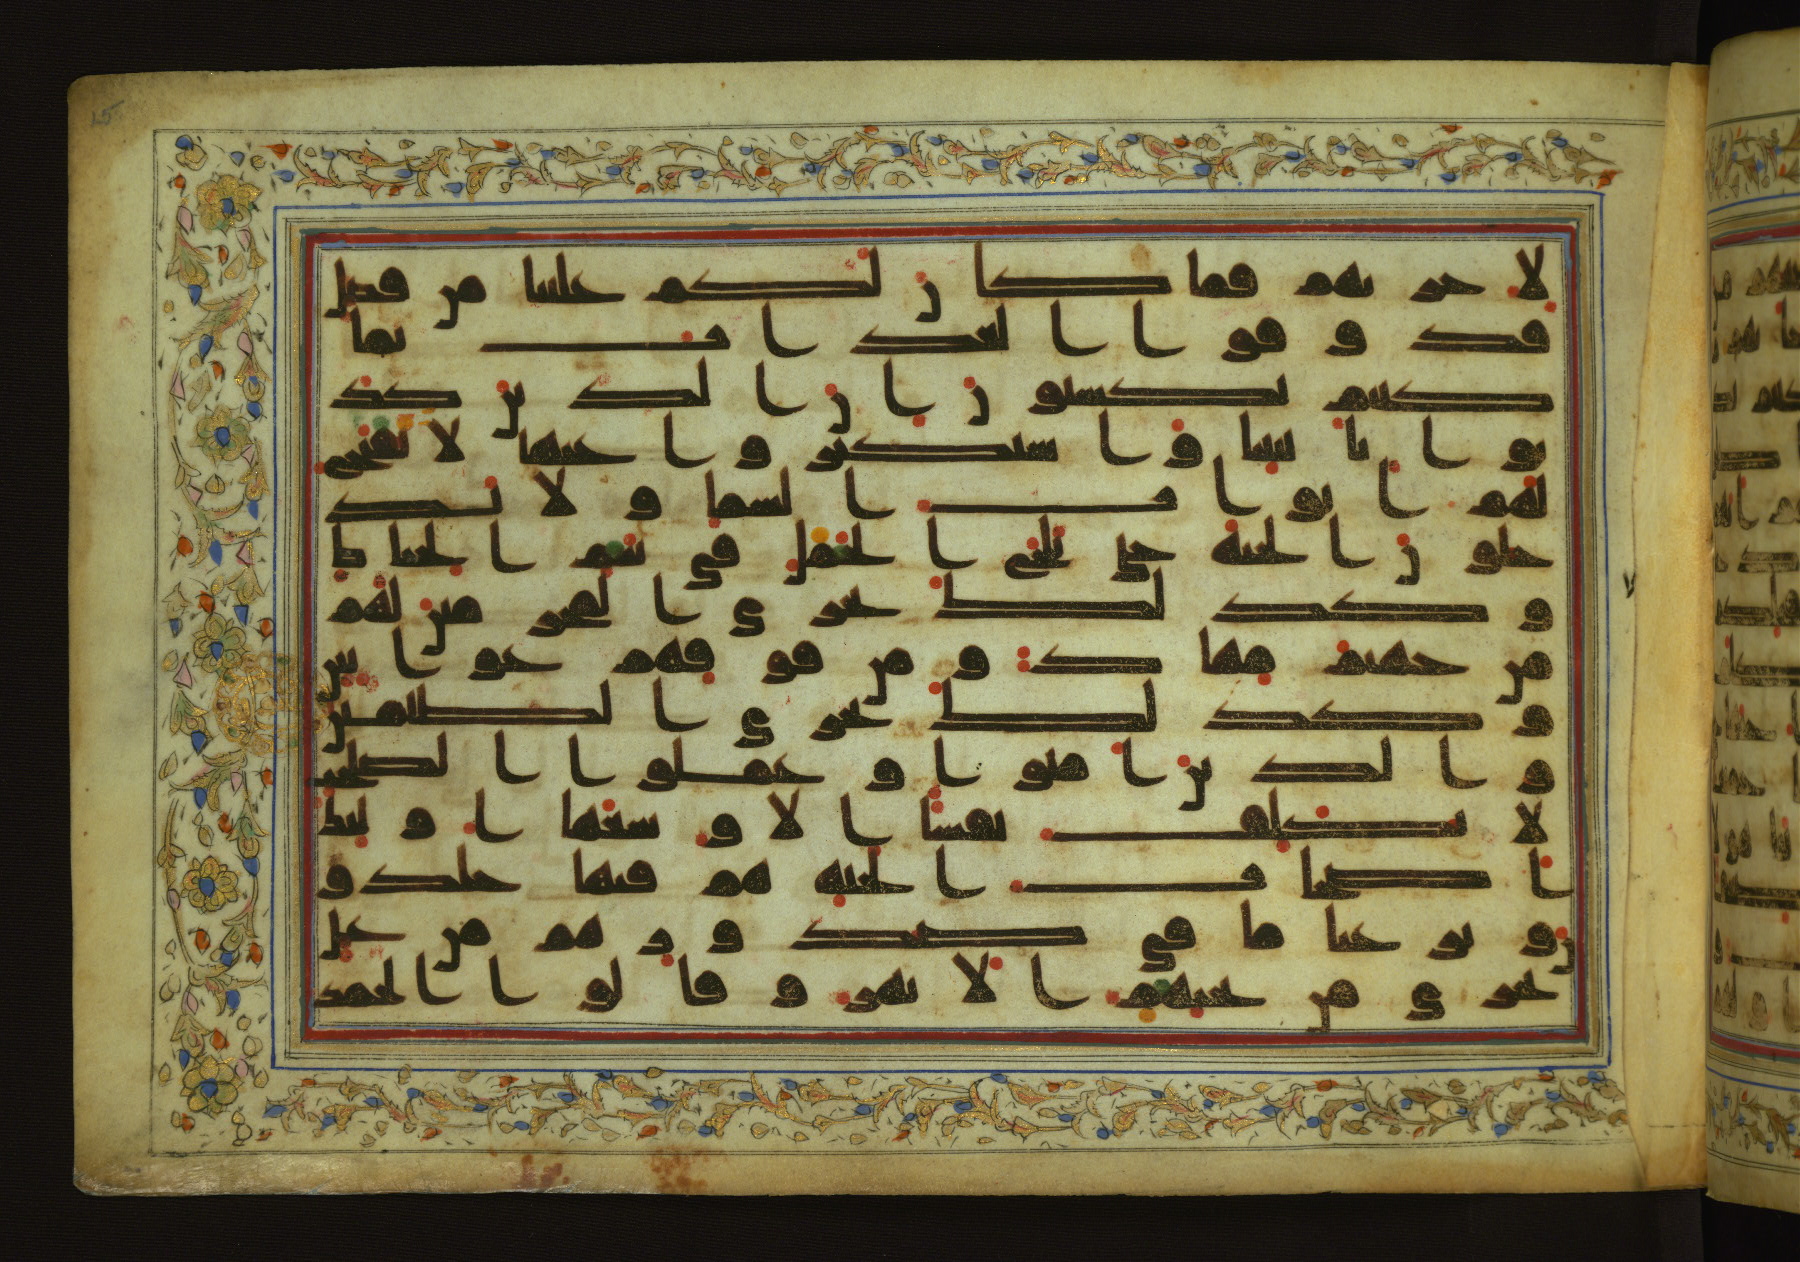 لاخريهم فما كان لكم علينا من فضل
فذوقوا العذاب بما
كنتم تكسبون ان الذين كذ
بوا بايتنا واستكبروا عنها لا تفتح
لهم ابوب السما ولا يد
خلون الجنة حتى يلج الجمل في سم الخياط
وكذلك نجزي المجرمين لهم
من جهنم مهاد ومن فوقهم غواش
وكذلك نجزي الظلمين
والذين امنوا وعملوا الصلحت
لا نكلف نفسا الا وسعها اولئك
اصحب الجنة هم فيها خلدو
ن ونزعنا ما في صدورهم من غل
تجري من تحتهم الانهر وقالوا الحمد